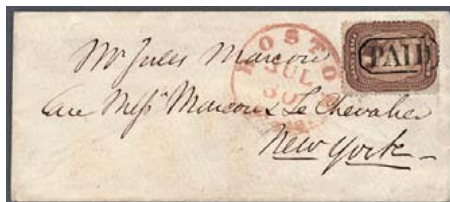 BOSTON
JUL
30
PAID
Mr Jules Marcou
Care Messrs Marcou & Le Chevalier
New York